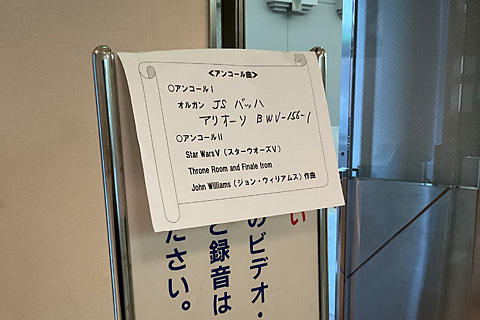 <アンコール曲>
○アンコールⅠ
オルガン JS バッハ
アリオーソ BWV-156-1
○アンコールⅡ
Star WarsⅤ（スターウオーズⅤ）
Throne Room and Finale from
John Williams（ジョン・ウィリアムス）作曲
い
のビデオ・
録音は
ださい。